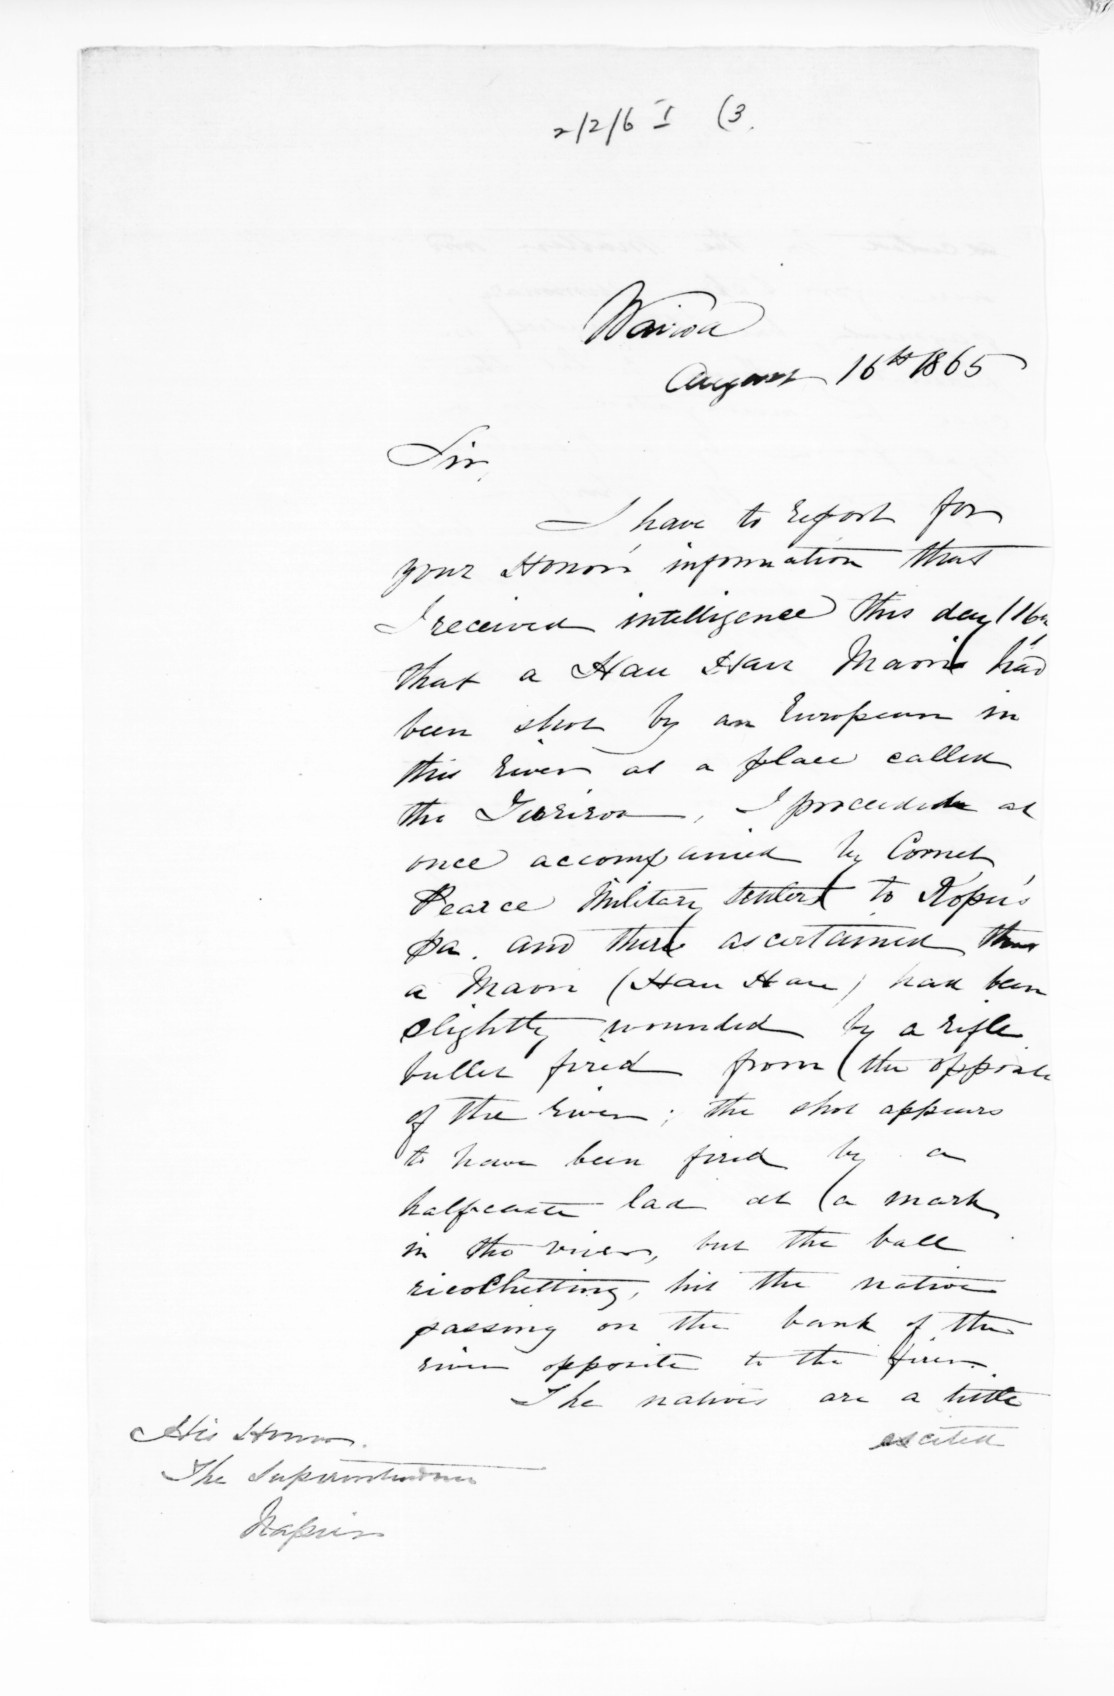 2/2/6 I (3.
Wairoa
August 16th 1865
Sir,
I have to report for
your Honor's information that
I received intelligence this day (16th
that a Hau Hau Maori had
been shot by an European in
this River at a place called
the
, I proceeded at
once accompanied by Cornet
Pearce Military Settlers to Kopu's
pa. and there ascertained that
a Maori (Hau Hau) had been
slightly wounded by a rifle
bullet fired from the opposite
of the river; the shot appears
to have been fired by a
halfcaste lad at a mark
in the river, but the ball
ricochetting, hit the native
passing on the bank of the
river opposite to the firer.
The natives are a little
excited
His Honor.
The Superintendent
Napier